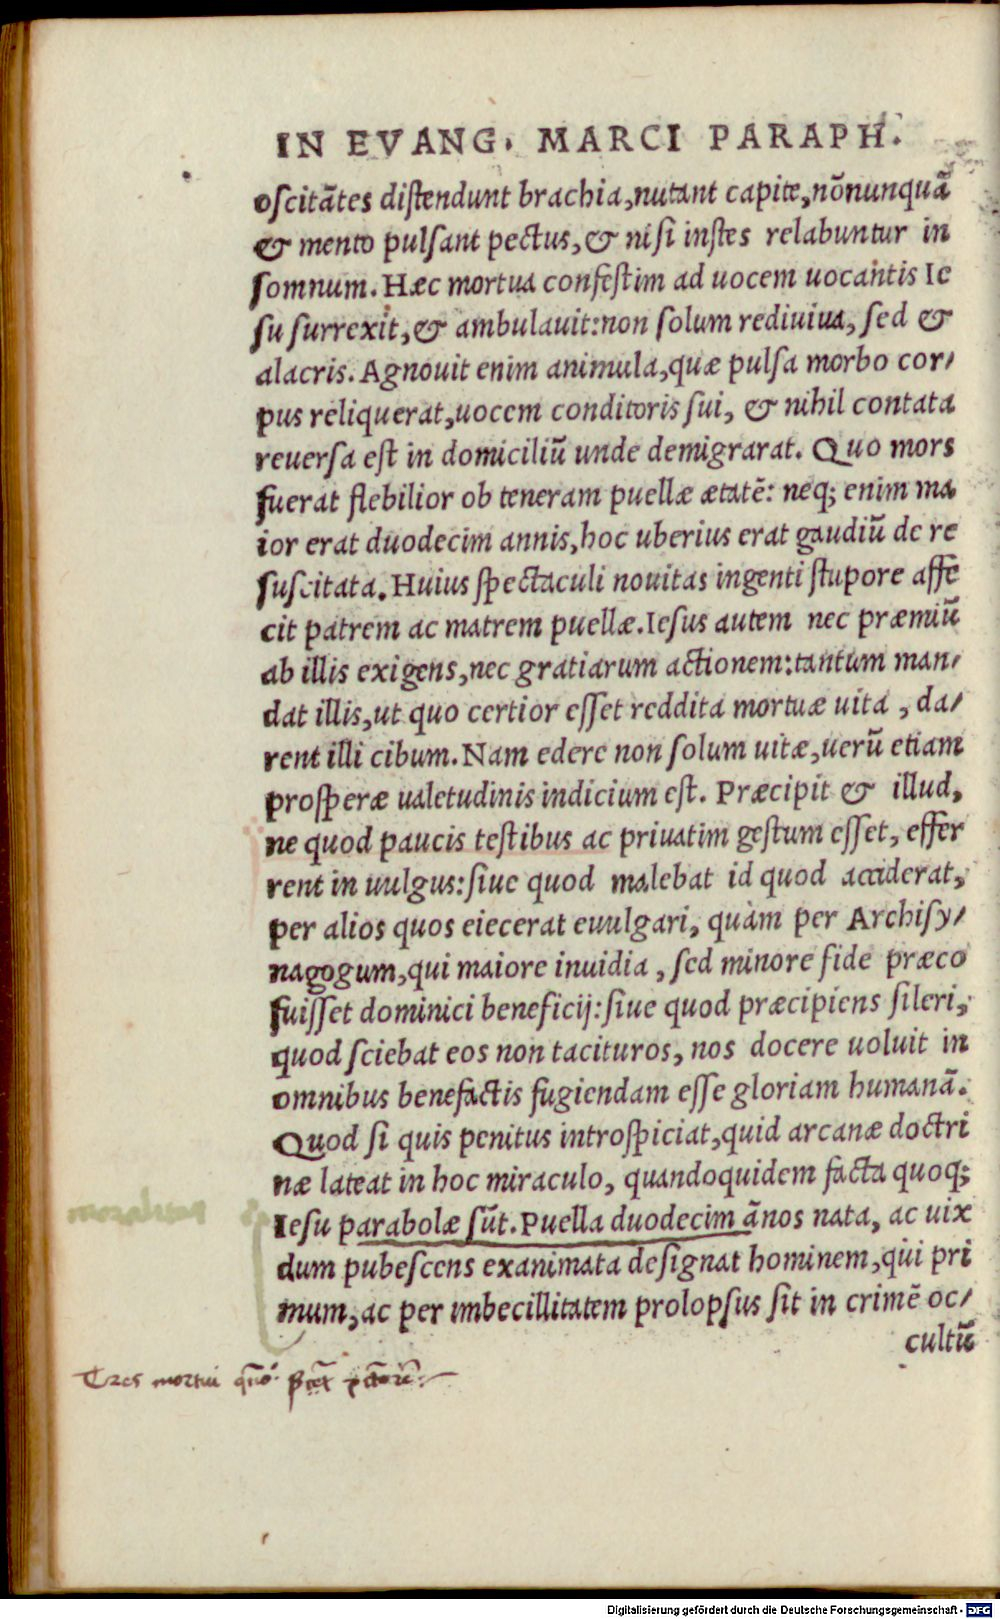 IN EVANG. MARCI PARAPH.
oscitātes distendunt brachia, nutant capite, nōnunquā
& mento pulsant pectus, & nisi instes relabuntur in
somnum. Hæc mortua confestim ad uocem uocantis Ie
su surrexit, & ambulauit: non solum rediuiua, sed &
alacris. Agnouit enim animula, quæ pulsa morbo cor/
pus reliquerat, uocem conditoris sui, & nihil contata
reuersa est in domiciliū unde demigrarat. Quo mors
fuerat flebilior ob teneram puellæ ætatē: neq; enim ma
ior erat duodecim annis, hoc uberius erat gaudiū de re
suscitata. Huius spectaculi nouitas ingenti stupore affe
cit patrem ac matrem puellæ. Iesus autem nec præmiū
ab illis exigens, nec gratiarum actionem: tantum man/
dat illis, ut quo certior esset reddita mortuæ uita, da/
rent illi cibum. Nam edere non solum uitæ, uerū etiam
prosperæ ualetudinis indicium est. Præcipit & illud,
ne quod paucis testibus ac priuatim gestum esset, effer
rent in uulgus: siue quod malebat id quod acciderat,
per alios quos eiecerat euulgari, quàm per Archisy/
nagogum, qui maiore inuidia, sed minore fide præco
fuisset dominici beneficij: siue quod præcipiens sileri,
quod sciebat eos non tacituros, nos docere uoluit in
omnibus benefactis fugiendam esse gloriam humanā.
Quod si quis penitus introspiciat, quid arcanæ doctri
næ lateat in hoc miraculo, quandoquidem facta quoq;
Iesu parabolæ sūt. Puella duodecim ānos nata, ac uix
dum pubescens exanimata designat hominem, qui pri
mum, ac per imbecillitatem prolopsus sit in crimē oc/
cultū
Tres mortui
Digitalisierung gefördert durch die Deutsche Forschungsgemeinschaft - DFG